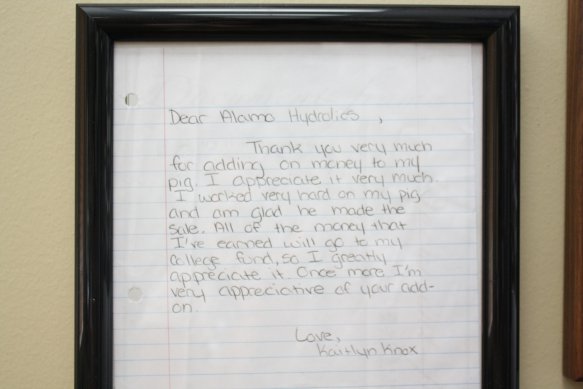 Dear Alamo Hydrolics ,
Thank you very much
for adding on money to my
pig. I appreciate it very much.
I worked very hard on my pig
and am glad he made the
sale. All of the money that
I've earned will go to my
college fund, so I greatly
appreciate it. Once more I'm
very appreciative of your add-
on.
Love,
Kaitlyn Knox